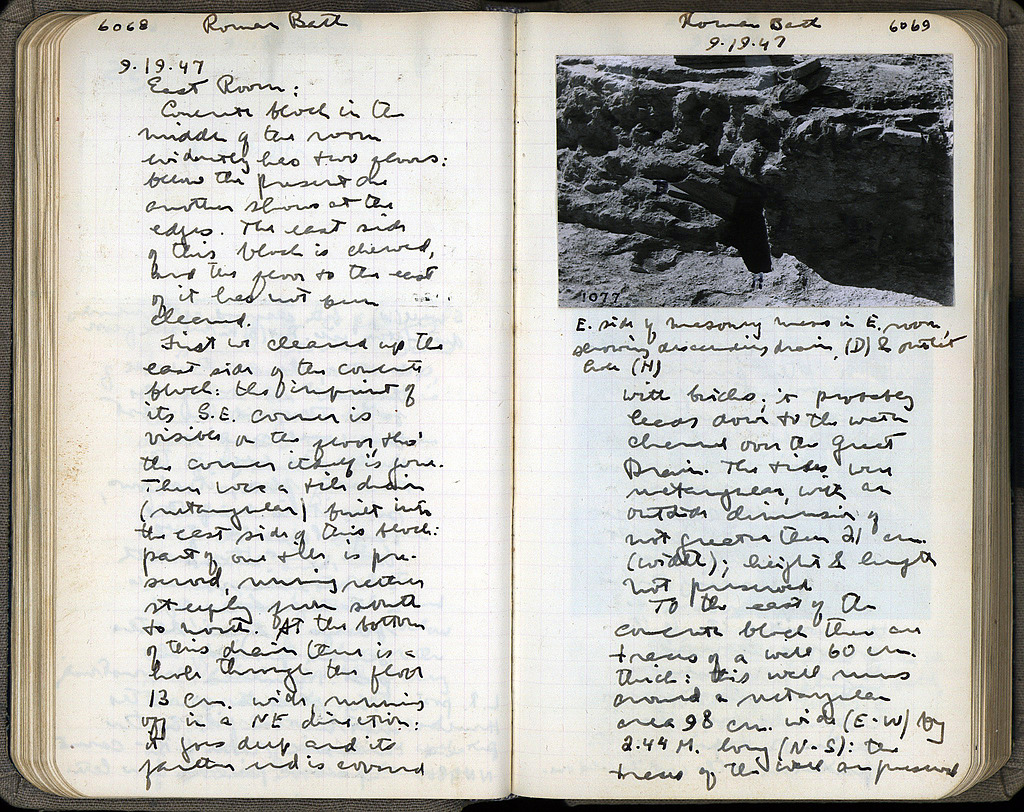 6068 Roman Bath
9.19.47
East Room:
Concrete block in the
middle of the room
evidently has two floors:
below the present one
another shows at the
edges. The east side
of this block is chewed,
and the floor to the east
of it has not been
cleaned.
First we cleaned up the
east side of the concrete
block: the imprint of
its S.E. corner is
visible on the floor, tho'
the corner itself is gone.
There was a tile drain
(rectangular) built into
the east side of this block:
part of one tile is pre-
served, running rather
steeply from south
to north. At the bottom
of this drain there is a
hole through the floor
13 cm. wide, running
off in a NE direction:
it goes deep and its
farther end is covered
Roman Bath 6069
9.19.47
1077
E. side of masonry mass in E. room,
showing descending drain (D) & outlet
hole (H)
with bricks; it probably
leads down to the water
channel over the Great
Drain. The tiles were
rectangular, with an
outside dimension of
not greater than 21 cm.
(width); height & length
not preserved
To the east of the
concrete block there are
traces of a wall 60 cm.
thick: this wall runs
around a rectangular
area 98 cm. wide (E-W) by
2.44 M. long (N-S): the
traces of the wall are preserved